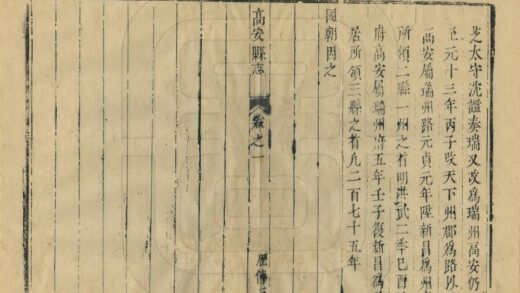 芝太守沈謐奏瑞又改爲瑞州高安仍
至元十三年丙子改天下州郡爲路以
高安屬瑞州路元貞元年陞新昌爲州
所領二縣一州之首明洪武二年己酉
府高安屬瑞州府五年壬子復新昌爲
居所領三縣之首凡二百七十五年
國朝因之
高安縣志
卷之一
歷傳